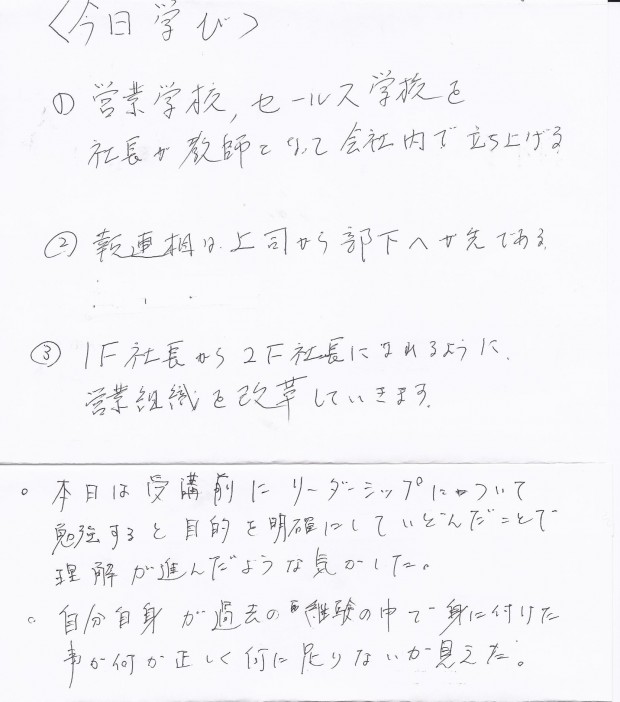 〈今日学び〉
① 営業学校,セールス学校を
社長が教師となって会社内で立ち上げる
② 報連相は、上司から部下へが先である
③ 1F社長から2F社長になれるように、
営業組織を改革していきます。
。本日は受講前にリーダーシップについて
勉強すると目的を明確にしていどんだことで
理解が進んだような気がした。
。自分自身が過去の経験の中で身に付けた
事が何が正しく何に足りないか見えた。